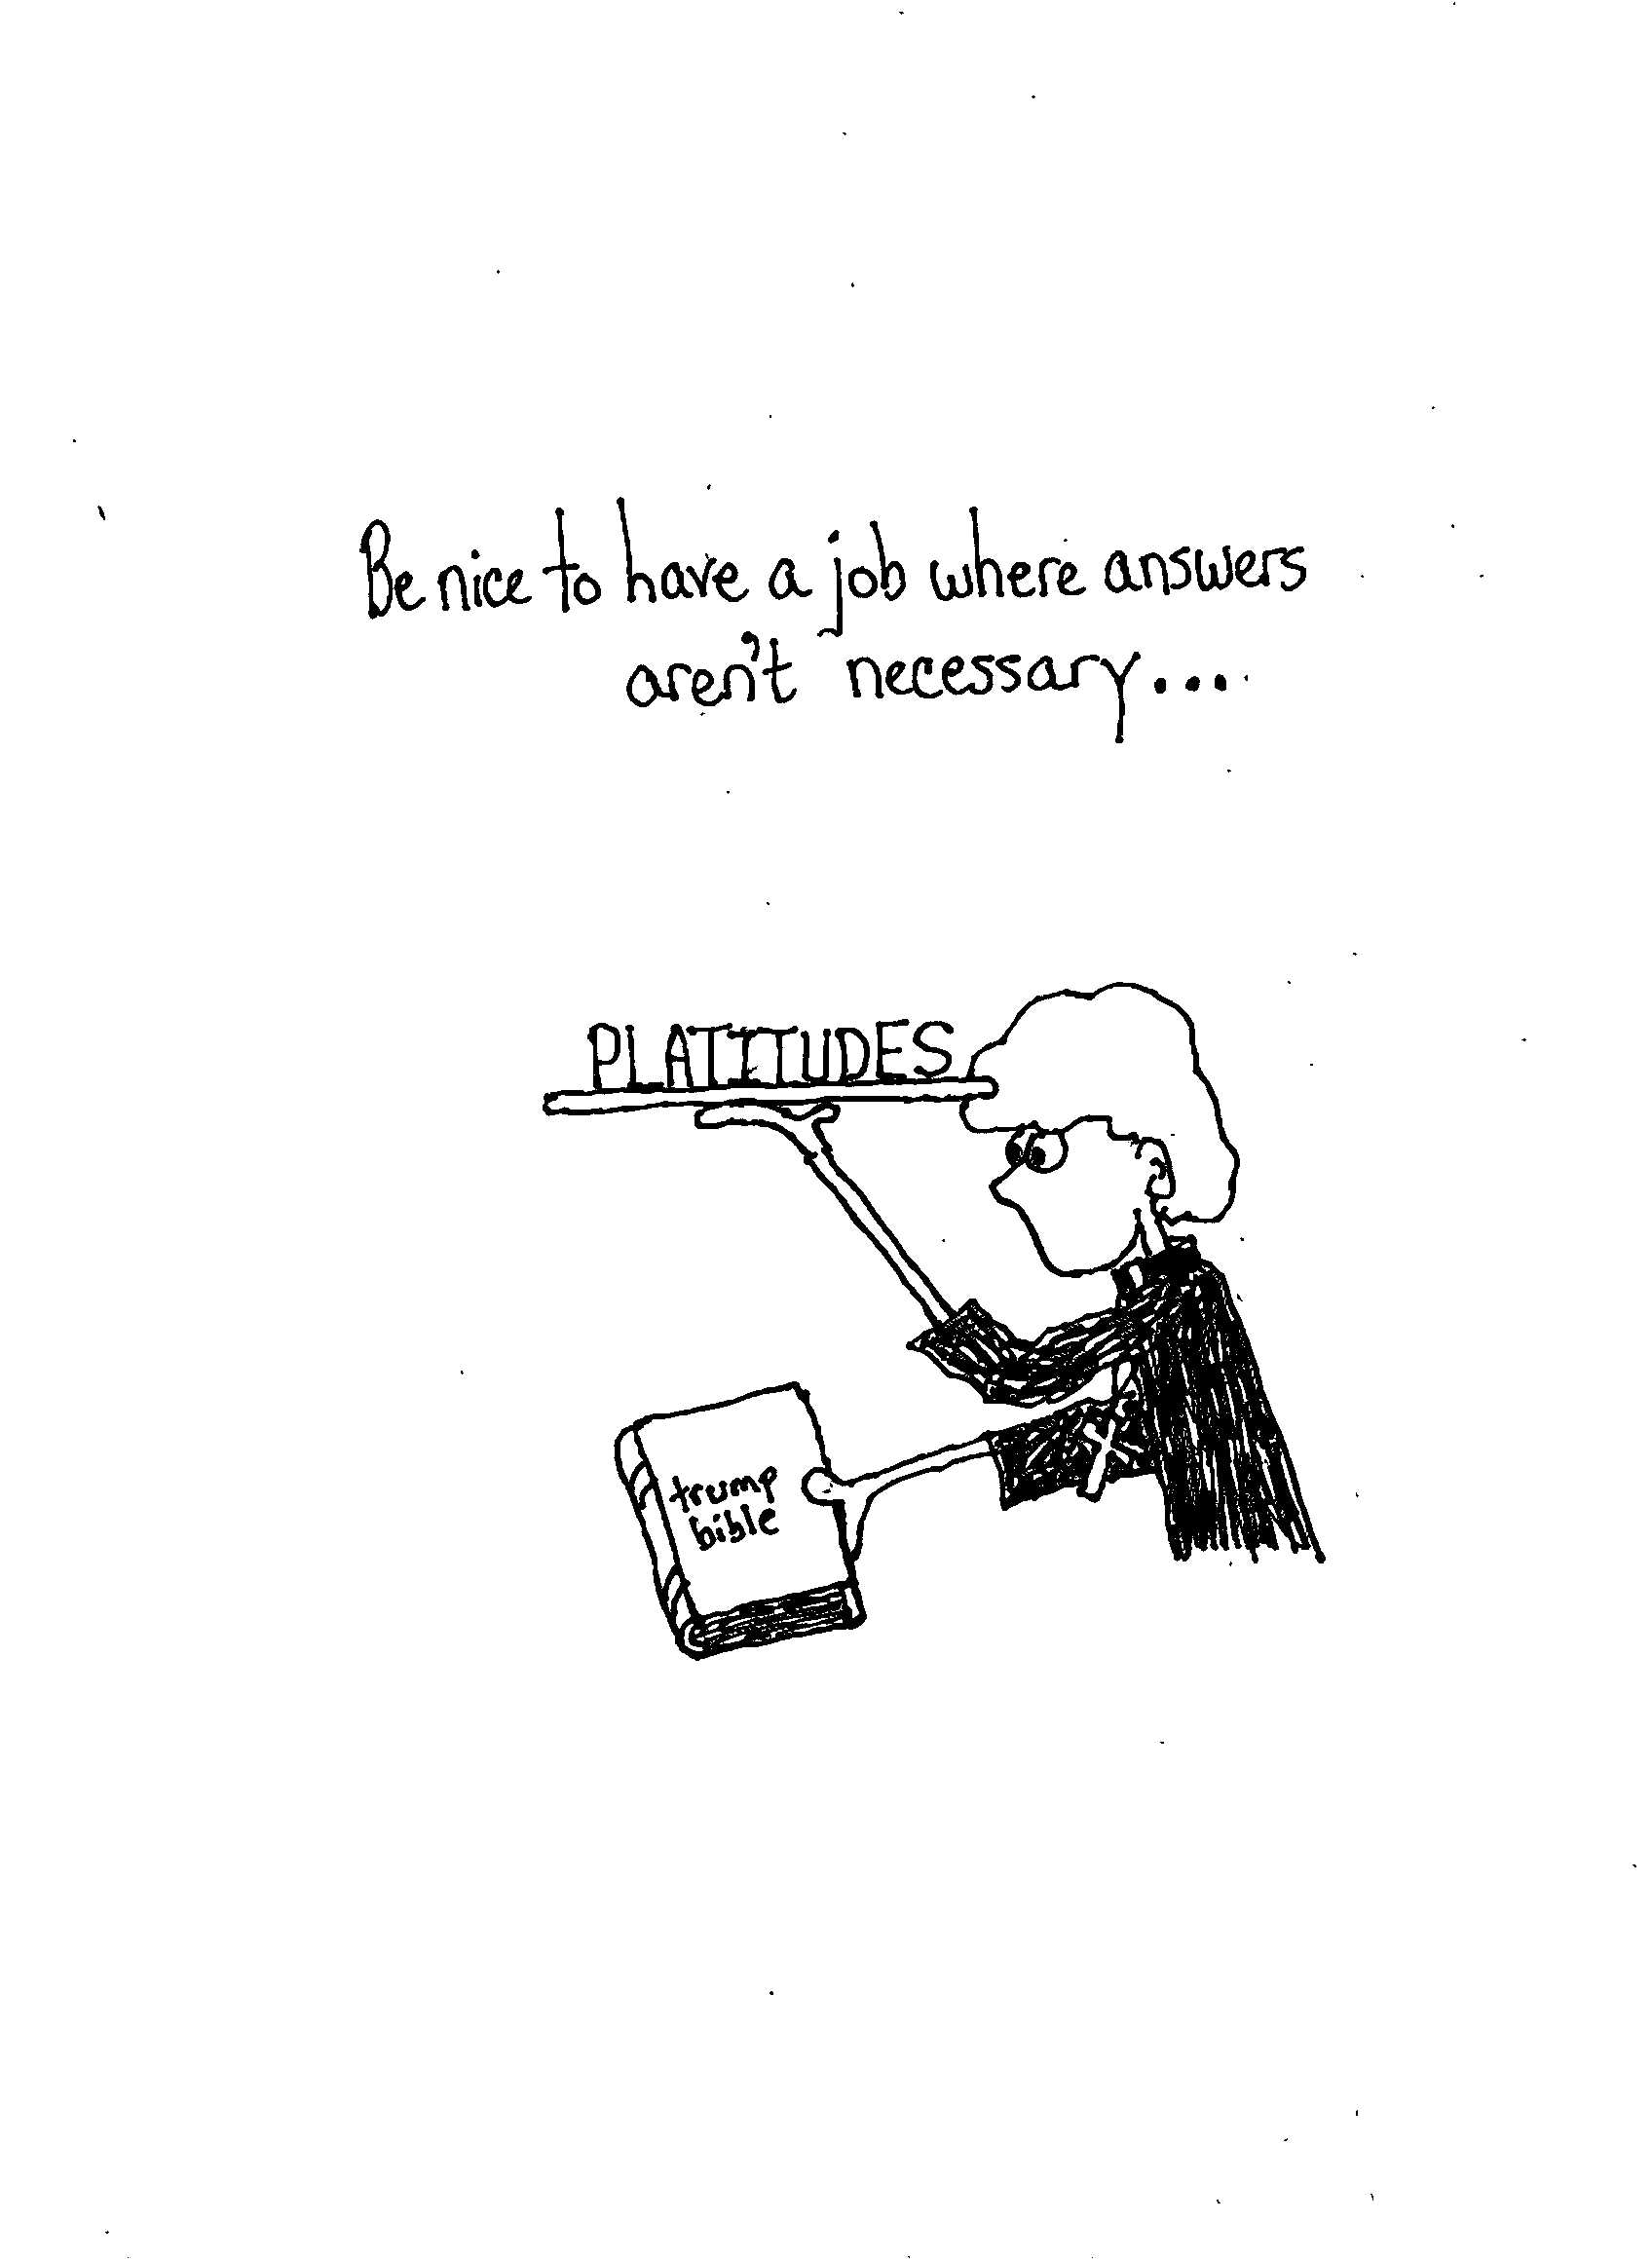 Be nice to have a job where answers
aren't necessary...
PLATITUDES
trump
bible